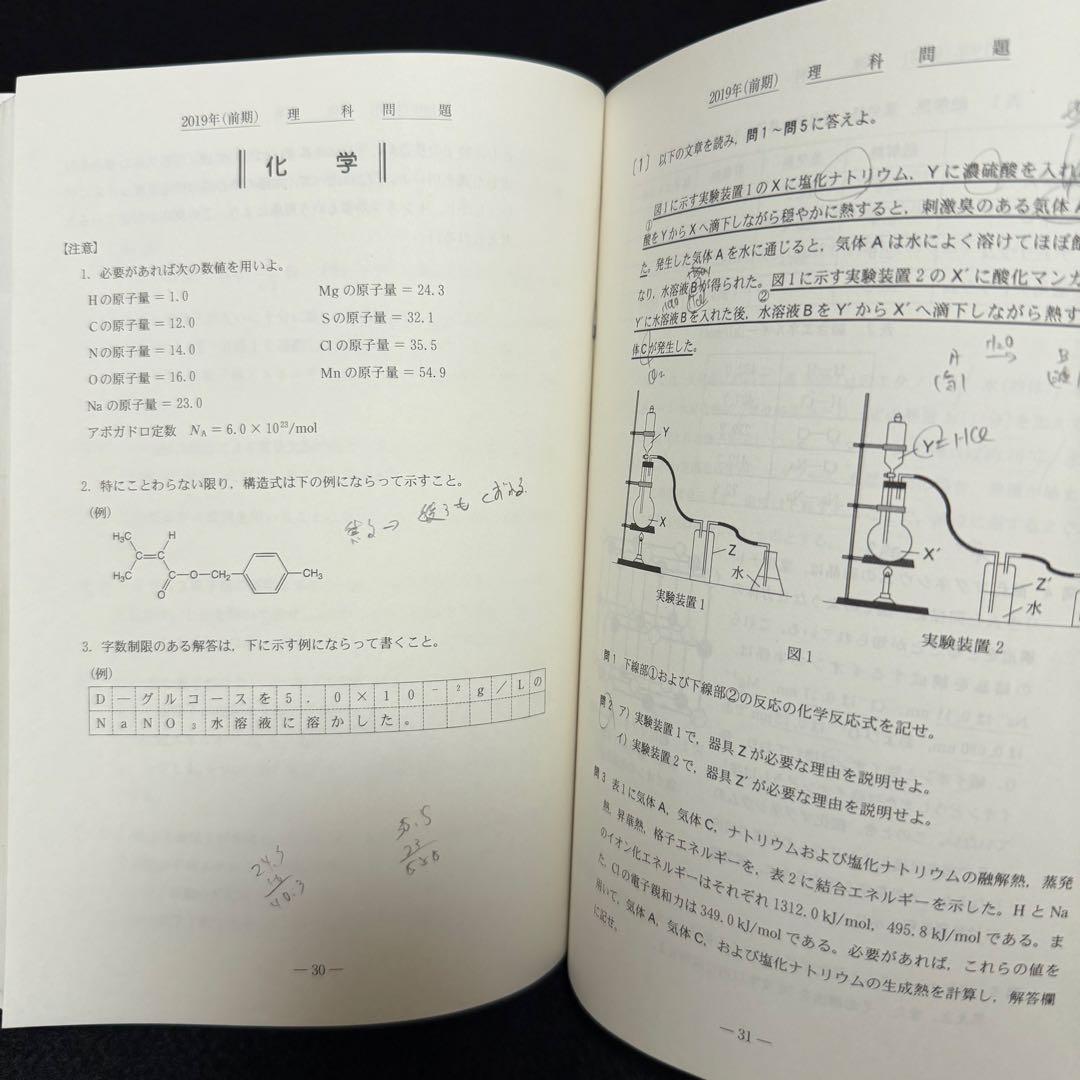 2019年(前期) 理 科 問 題
化 学
【注意】
1. 必要があれば次の数値を用いよ。
Hの原子量 = 1.0
Mg の原子量 = 24.3
Cの原子量 = 12.0
Sの原子量 = 32.1
Nの原子量 = 14.0
Cl の原子量 = 35.5
Oの原子量 = 16.0
Mn の原子量 = 54.9
Na の原子量 = 23.0
アボガドロ定数 NA = 6.0 × 10²³/mol
2. 特にことわらない限り,構造式は下の例にならって示すこと。
(例)
H₃C
H
C=C
H₃C
C-O-CH₂
CH₃
O
3. 字数制限のある解答は,下に示す例にならって書くこと。
(例)
D-グルコースを5.0×10⁻²g/Lの
NaNO₃水溶液に溶かした。
24.3
16
40.3
35.5
23
— 30 —
2019年(前期) 理 科 問 題
〔1〕 以下の文章を読み,問1~問5に答えよ。
図1に示す実験装置1のXに塩化ナトリウム,Yに濃硫酸を入れ
①
酸をYからXへ滴下しながら穏やかに熱すると,刺激臭のある気体A
た。発生した気体Aを水に通じると,気体Aは水によく溶けてほぼ飽
なり,水溶液Bが得られた。図1に示す実験装置2のX′に酸化マンガ
②
Y′に水溶液Bを入れた後,水溶液BをY′からX′へ滴下しながら熱す
体Cが発生した。
H₂O
A
B
Y
X
Z
水
実験装置1
Y′=HCl
X′
Z′
水
実験装置2
図1
問1 下線部①および下線部②の反応の化学反応式を記せ。
問2 ア) 実験装置1で,器具Zが必要な理由を説明せよ。
イ) 実験装置2で,器具Z′が必要な理由を説明せよ。
問3 表1に気体A,気体C,ナトリウムおよび塩化ナトリウムの融解熱,蒸発
熱,昇華熱,格子エネルギーを,表2に結合エネルギーを示した。HとNa
のイオン化エネルギーはそれぞれ1312.0 kJ/mol,495.8 kJ/molである。ま
た,Clの電子親和力は349.0 kJ/molである。必要があれば,これらの値を
用いて,気体A,気体C,および塩化ナトリウムの生成熱を計算し,解答欄
に記せ。
— 31 —